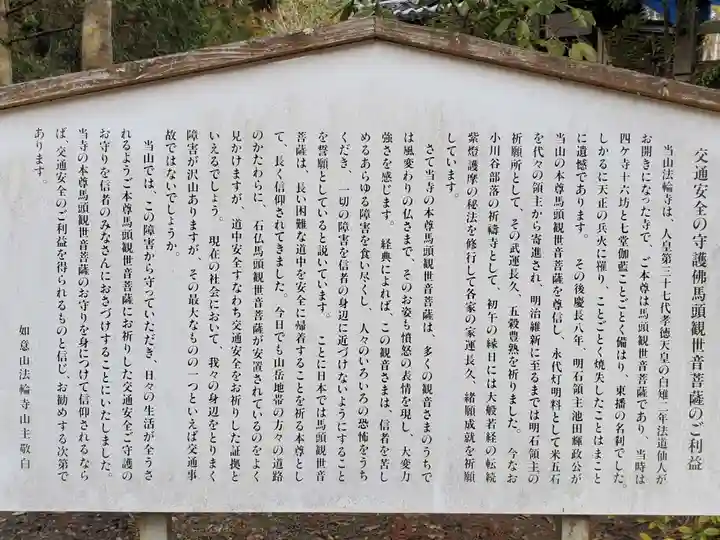 交通安全の守護佛馬頭観世音菩薩のご利益
当山法輪寺は、人皇第三十七代孝徳天皇の白雉二年法道仙人が
お開きになった寺で、ご本尊は馬頭観世音菩薩であり、当時は
四ケ寺十六坊と七堂伽藍ことごとく備はり、東播の名刹でした。
しかるに天正の兵火に罹り、ことごとく焼失したことはまこと
に遺憾であります。 その後慶長八年、明石領主池田輝政公が
当山の本尊馬頭観世音菩薩を尊信し、永代灯明料として米五石
を代々の領主から寄進され、明治維新に至るまでは明石領主の
祈願所として、その武運長久、五穀豊熟を祈りました。 今なお
小川谷部落の祈祷寺として、初午の縁日には大般若経の転読
紫燈護摩の秘法を修行して各家の家運長久、緒願成就を祈願
しています。
さて当寺の本尊馬頭観世音菩薩は、多くの観音さまのうちで
は風変わりの仏さまで、そのお姿も憤怒の表情を現し、大変力
強さを感じます。 経典によれば、この観音さまは、信者を苦し
めるあらゆる障害を食い尽くし、人々のいろいろの恐怖をうち
くだき、一切の障害を信者の身辺に近づけないようにすること
を誓願としていると説いています。 ことに日本では馬頭観世音
菩薩は、長い困難な道中を安全に帰着することを祈る本尊とし
て、長く信仰されてきました。 今日でも山岳地帯の方々の道路
のかたわらに、石仏馬頭観世音菩薩が安置されているのをよく
見かけますが、道中安全すなわち交通安全をお祈りした証拠と
いえるでしょう。 現在の社会において、我々の身辺をとりまく
障害が沢山ありますが、その最大なものの一つといえば交通事
故ではないでしょうか。
当山では、この障害から守っていただき、日々の生活が全うさ
れるようご本尊馬頭観世音菩薩にお祈りした交通安全ご守護の
お守りを信者のみなさんにおさづけすることにいたしました。
当寺の本尊馬頭観世音菩薩のお守りを身につけて信仰されるなら
ば、交通安全のご利益を得られるものと信じ、お勧めする次第で
あります。
如意山法輪寺山主敬白